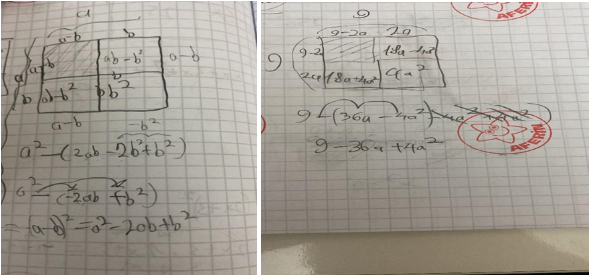 a
a-b b
a-b ab-b² a-b
b
b ab-b² b²
a-b
-b²
a²-(2ab-2b²+b²)
a²-(-2ab+b²)
=(a-b)²=a²-2ab+b²
9
9-2a 2a
9 9-2 18a-4a²
2a 18a+4a² 4a²
9-(36a-4a²)
AFERİN
9-36a+4a²